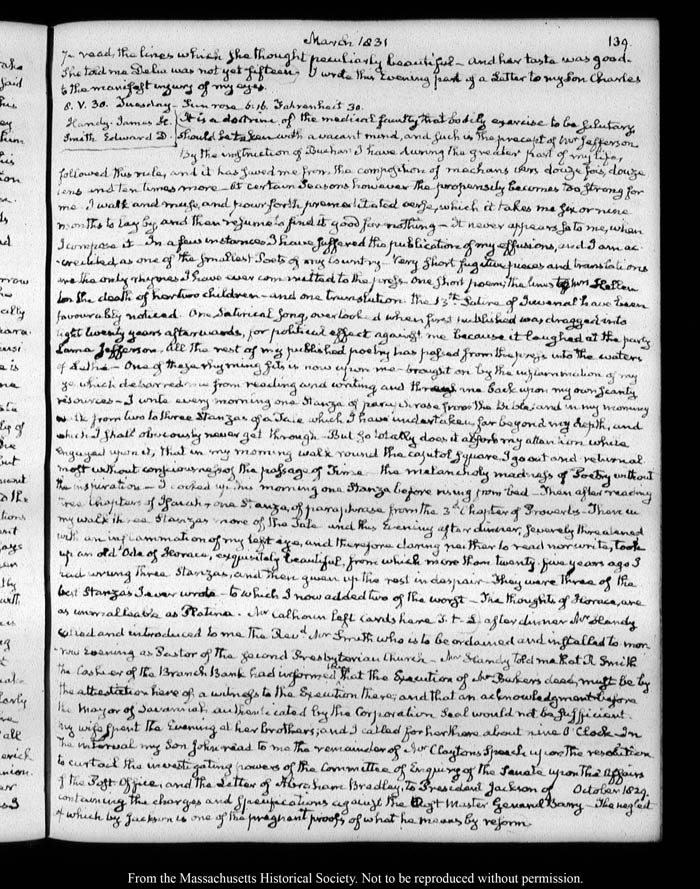 March 1831
139.
to read, the lines which she thought peculiarly beautiful - and her taste was good.
She told me Delia was not yet fifteen. I wrote this Evening part of a Letter to my Son Charles
to the manifest injury of my eyes.
8. V. 30. Tuesday - Sun rose 6:16. Fahrenheit 30.
Handy James H. It is a doctrine of the medical faculty that bodily exercise to be salutary
Smith Edward D. should be taken with a vacant mind, and such is the precept of Mr Jefferson
By the instruction of Buchan I have during the greater part of my life,
followed this rule, and it has saved me from the composition of mechans vers douze fois, douze
cens and ten times more - At certain Seasons however the propensity becomes too strong for
me. I walk and muse, and pour forth premeditated verse, which it takes me six or nine
months to lay by, and then resume to find it good for nothing - It never appears so to me, when
I compose it. In a few instances I have suffered the publication of my effusions, and I am ac-
credited as one of the smallest Poets of my Country - Very short fugitive pieces and translations
are the only rhymes I have ever committed to the press. One short poem; the lines to Mrs Hellen
on the death of her two children - and one translation the 13th Satire of Juvenal have been
favourably noticed. One Satirical Song, overlooked when first published was dragged into
light twenty years afterwards, for political effect against me because it laughed at the party
Lama Jefferson. All the rest of my published poetry has passed from the press into the waters
of Lethe - One of these rhyming fits is now upon me - brought on by the inflammation of my
eye which debarred me from reading and writing and threw me back upon my own scanty
resources - I write every morning one Stanza of paraphrase from the Bible, and in my morning
walk from two to three Stanzas of a Tale which I have undertaken, far beyond my depth, and
which I shall obviously never get through - But so totally does it absorb my attention while
engaged upon it, that in my morning walk round the capitol Square I go out and return al
most without consciousness of the passage of Time - the melancholy madness of Poetry without
the inspiration - I composed this morning one Stanza before rising from bed - Then after reading
three Chapters of Isaiah, one Stanza, of paraphrase from the 3d Chapter of Proverbs - Then in
my walk three Stanzas more of the Tale and this Evening after dinner, severely threatened
with an inflammation of my left eye, and therefore daring neither to read nor write, took
up an old Ode of Horace, exquisitely beautiful, from which more than twenty-five years ago I
had wrung three Stanzas, and then given up the rest in despair - They were three of the
best Stanzas I ever wrote - to which I now added two of the worst - The thoughts of Horace, are
as unmalleable as Platina. Mr Calhoun left Cards here T. t. L. after dinner Mr Handy
called and introduced to me the Revd Mr Smith who is to be ordained and installed to mor-
row evening as Pastor of the second Presbyterian Church - Mr Handy told me that R. Smith
the Cashier of the Branch Bank had informed him that the Execution of Mr Bakers deed, must be by
the attestation here of a witness to the Execution there; and that an acknowledgment before
the Mayor of Savannah authenticated by the Corporation Seal would not be sufficient.
My wife spent the Evening at her brothers; and I called for her there about nine O'Clock - In
the interval my Son John read to me the remainder of Mr Claytons Speech upon the resolution
to curtail the investigating powers of the Committee of Enquiry of the Senate upon the Affairs
of the Post Office, and the Letter of Abraham Bradley, to President Jackson of October 1829.
containing the charges and specifications against the Post Master General Barry - The neglect
of which by Jackson is one of the pregnant proofs of what he means by reform.
From the Massachusetts Historical Society. Not to be reproduced without permission.